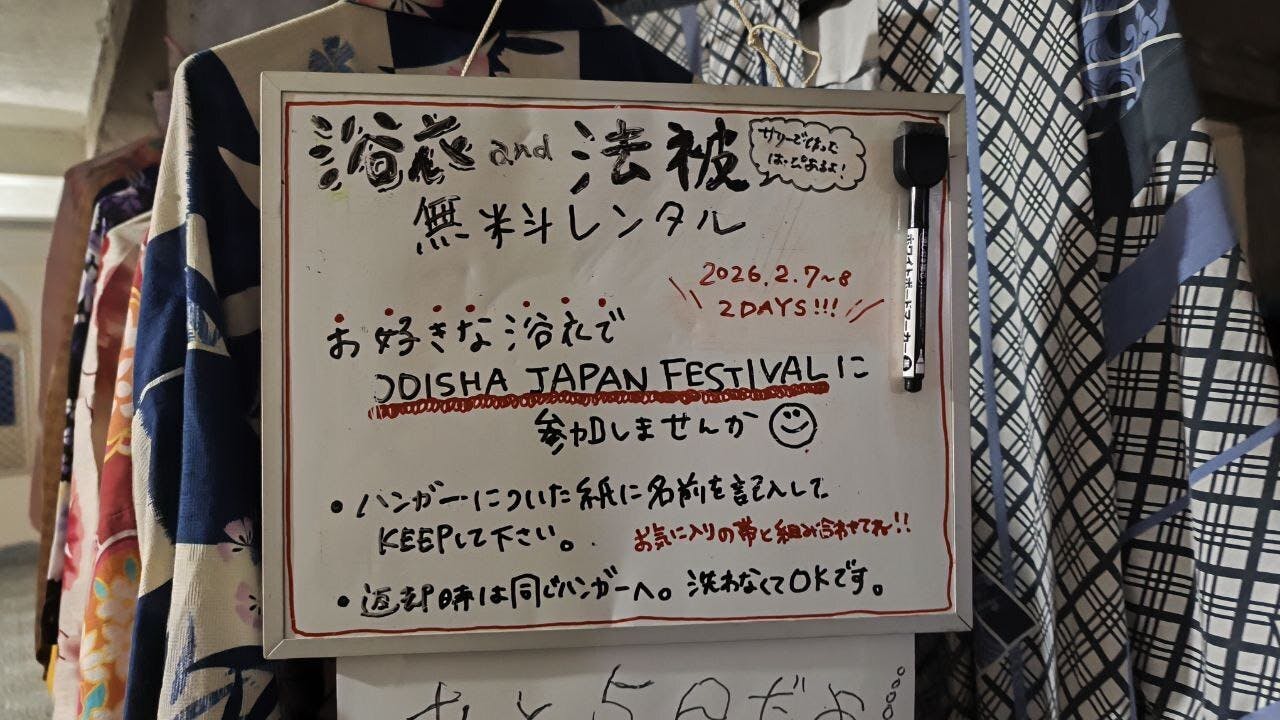 浴衣 and 法被
サリーでできた
はっぴもあるよ!
無料レンタル
2026.2.7~8
2DAYS!!!
お好きな浴衣で
ODISHA JAPAN FESTIVALに
参加しませんか
• ハンガーについた紙に名前を記入して
KEEPして下さい。
お気に入りの帯と組み合わせてね!!
• 返却時は同じハンガーへ。洗わなくてOKです。
ホワイトボードマーカー
あと5日だよ